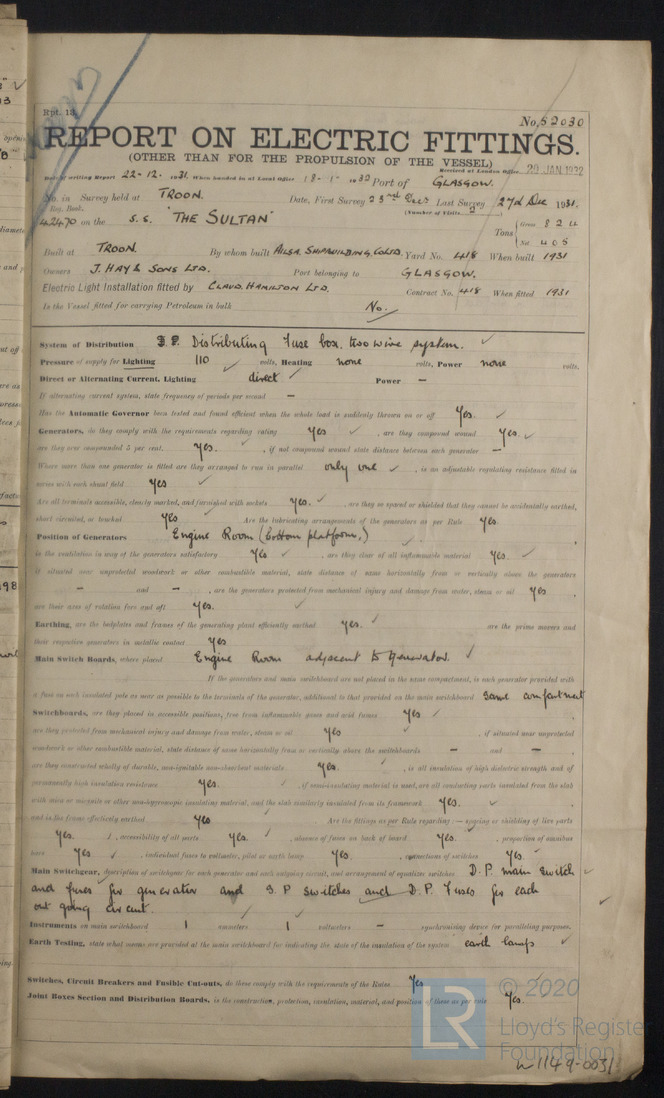 Rpt. 13.
No. 52030
REPORT ON ELECTRIC FITTINGS.
(OTHER THAN FOR THE PROPULSION OF THE VESSEL)
Received at London Office 20 JAN 1932
Date of writing Report 22-12-1931. When handed in at Local Office 18-1-1932 Port of GLASGOW.
No. in Survey held at TROON. Date, First Survey 23rd Last Survey 22nd Dec 1931.
Reg. Book. (Number of Visits
42470 on the S.S. "THE SULTAN" Tons Gross 824
Net 405
Built at TROON. By whom built AILSA SHIPBUILDING CO LTD. Yard No. 418 When built 1931
Owners J. HAY & SONS LTD. Port belonging to GLASGOW.
Electric Light Installation fitted by CLAUD HAMILTON LTD. Contract No. 418 When fitted 1931
Is the Vessel fitted for carrying Petroleum in bulk No.
System of Distribution Distributing fuse box, two wire system.
Pressure of supply for Lighting 110 volts, Heating none volts, Power none volts.
Direct or Alternating Current, Lighting direct Power –
If alternating current system, state frequency of periods per second –
Has the Automatic Governor been tested and found efficient when the whole load is suddenly thrown on or off Yes.
Generators, do they comply with the requirements regarding rating Yes, are they compound wound Yes.
are they over compounded 5 per cent. Yes., if not compound wound state distance between each generator –
Where more than one generator is fitted are they arranged to run in parallel only one, is an adjustable regulating resistance fitted in
series with each shunt field Yes
Are all terminals accessible, clearly marked, and furnished with sockets Yes., are they so spaced or shielded that they cannot be accidentally earthed,
short circuited, or touched Yes Are the lubricating arrangements of the generators as per Rule Yes.
Position of Generators Engine Room (bottom platform,)
is the ventilation in way of the generators satisfactory Yes, are they clear of all inflammable material Yes.
if situated near unprotected woodwork or other combustible material, state distance of same horizontally from or vertically above the generators
– and –, are the generators protected from mechanical injury and damage from water, steam or oil Yes
are their axes of rotation fore and aft Yes.
Earthing, are the bedplates and frames of the generating plant efficiently earthed Yes. are the prime movers and
their respective generators in metallic contact Yes
Main Switch Boards, where placed Engine Room adjacent to Generator.
If the generators and main switchboard are not placed in the same compartment, is each generator provided with
a fuse on each insulated pole as near as possible to the terminals of the generator, additional to that provided on the main switchboard same compartment
Switchboards, are they placed in accessible positions, free from inflammable gases and acid fumes Yes
are they protected from mechanical injury and damage from water, steam or oil Yes, if situated near unprotected
woodwork or other combustible material, state distance of same horizontally from or vertically above the switchboards – and –,
are they constructed wholly of durable, non-ignitable non-absorbent materials Yes., is all insulation of high dielectric strength and of
permanently high insulation resistance Yes., if semi-insulating material is used, are all conducting parts insulated from the slab
with mica or micanite or other non-hygroscopic insulating material, and the slab similarly insulated from its framework Yes.
and is the frame effectively earthed Yes. Are the fittings as per Rule regarding:— spacing or shielding of live parts
Yes., accessibility of all parts Yes., absence of fuses on back of board Yes., proportion of omnibus
bars Yes, individual fuses to voltmeter, pilot or earth lamp Yes, connections of switches Yes.
Main Switchgear, description of switchgear for each generator and each outgoing circuit, and arrangement of equalizer switches D.P. main switch
and fuses for generator and S.P switches and D.P. Fuses for each
out going circuit.
Instruments on main switchboard 1 ammeters 1 voltmeters – synchronising device for paralleling purposes.
Earth Testing, state what means are provided at the main switchboard for indicating the state of the insulation of the system earth lamps
Switches, Circuit Breakers and Fusible Cut-outs, do these comply with the requirements of the Rules Yes
Joint Boxes Section and Distribution Boards, is the construction, protection, insulation, material, and position of these as per rule Yes.
LR
© 2020
Lloyd's Register
Foundation
W1149-0031